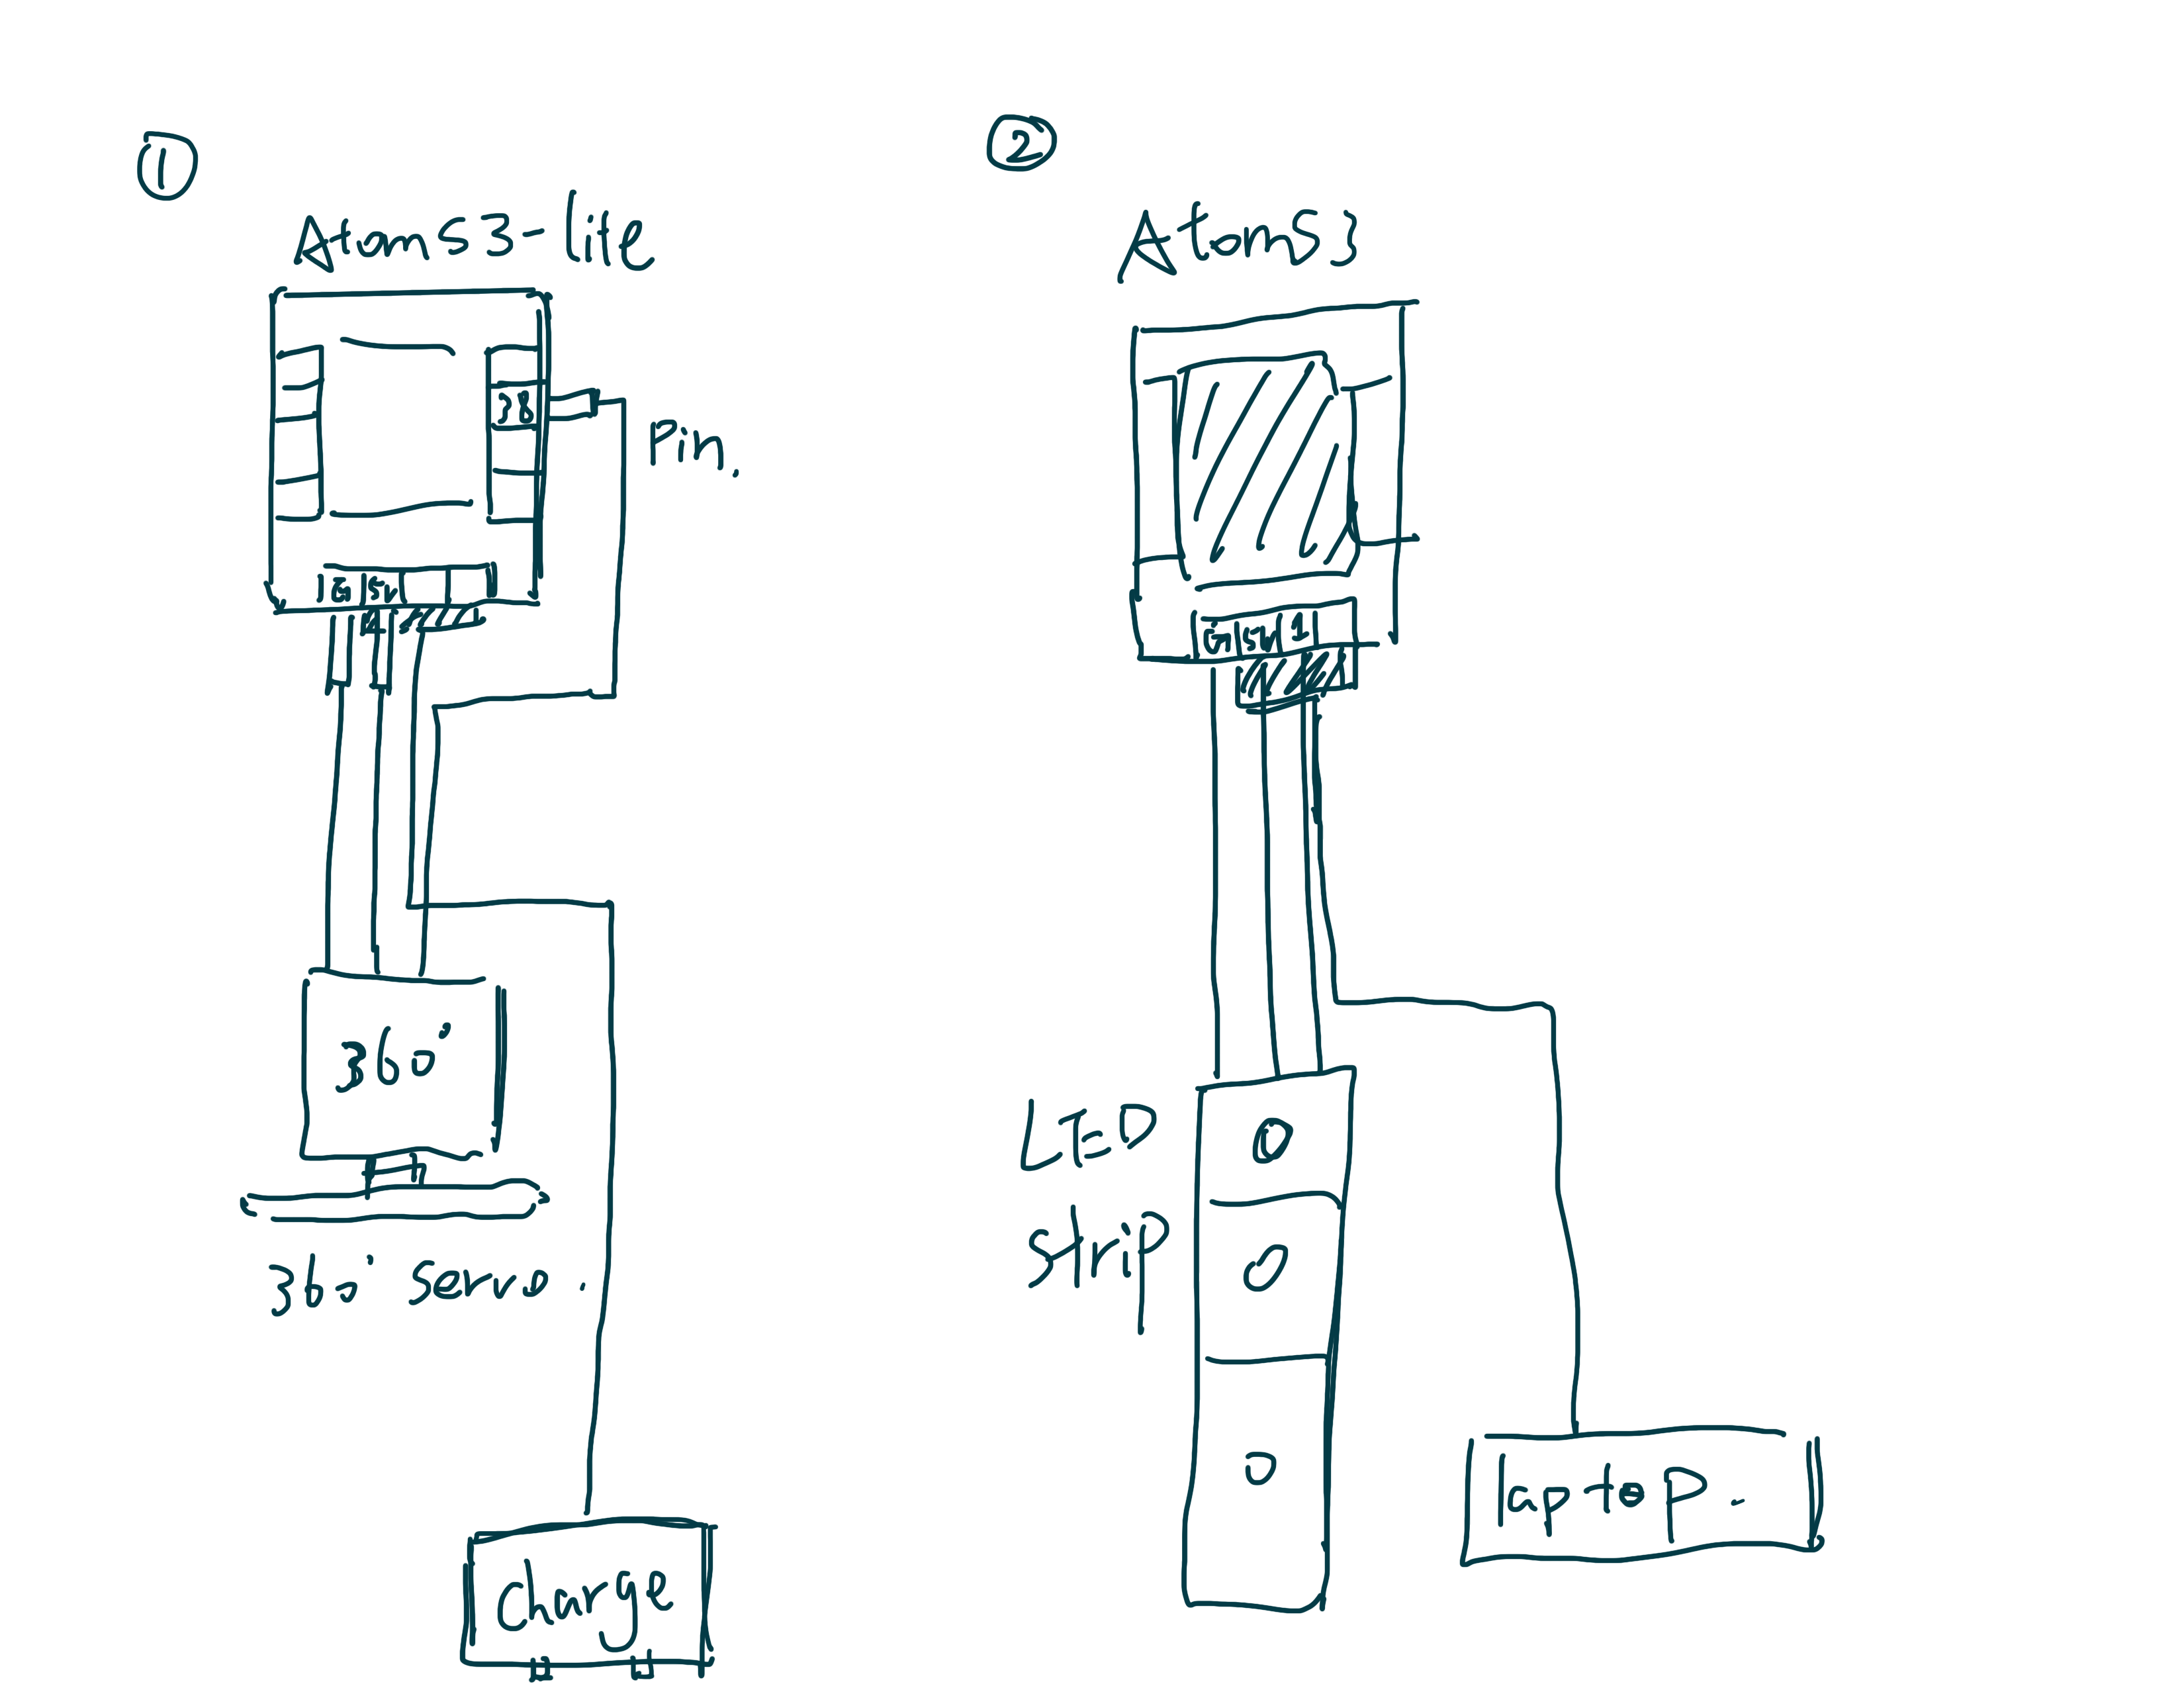 ①
AtomS3-lite
38
Pin.
G 5V
360°
360° Servo.
Charge
②
AtomS3
G 5V 1
LED
Strip
laptop.